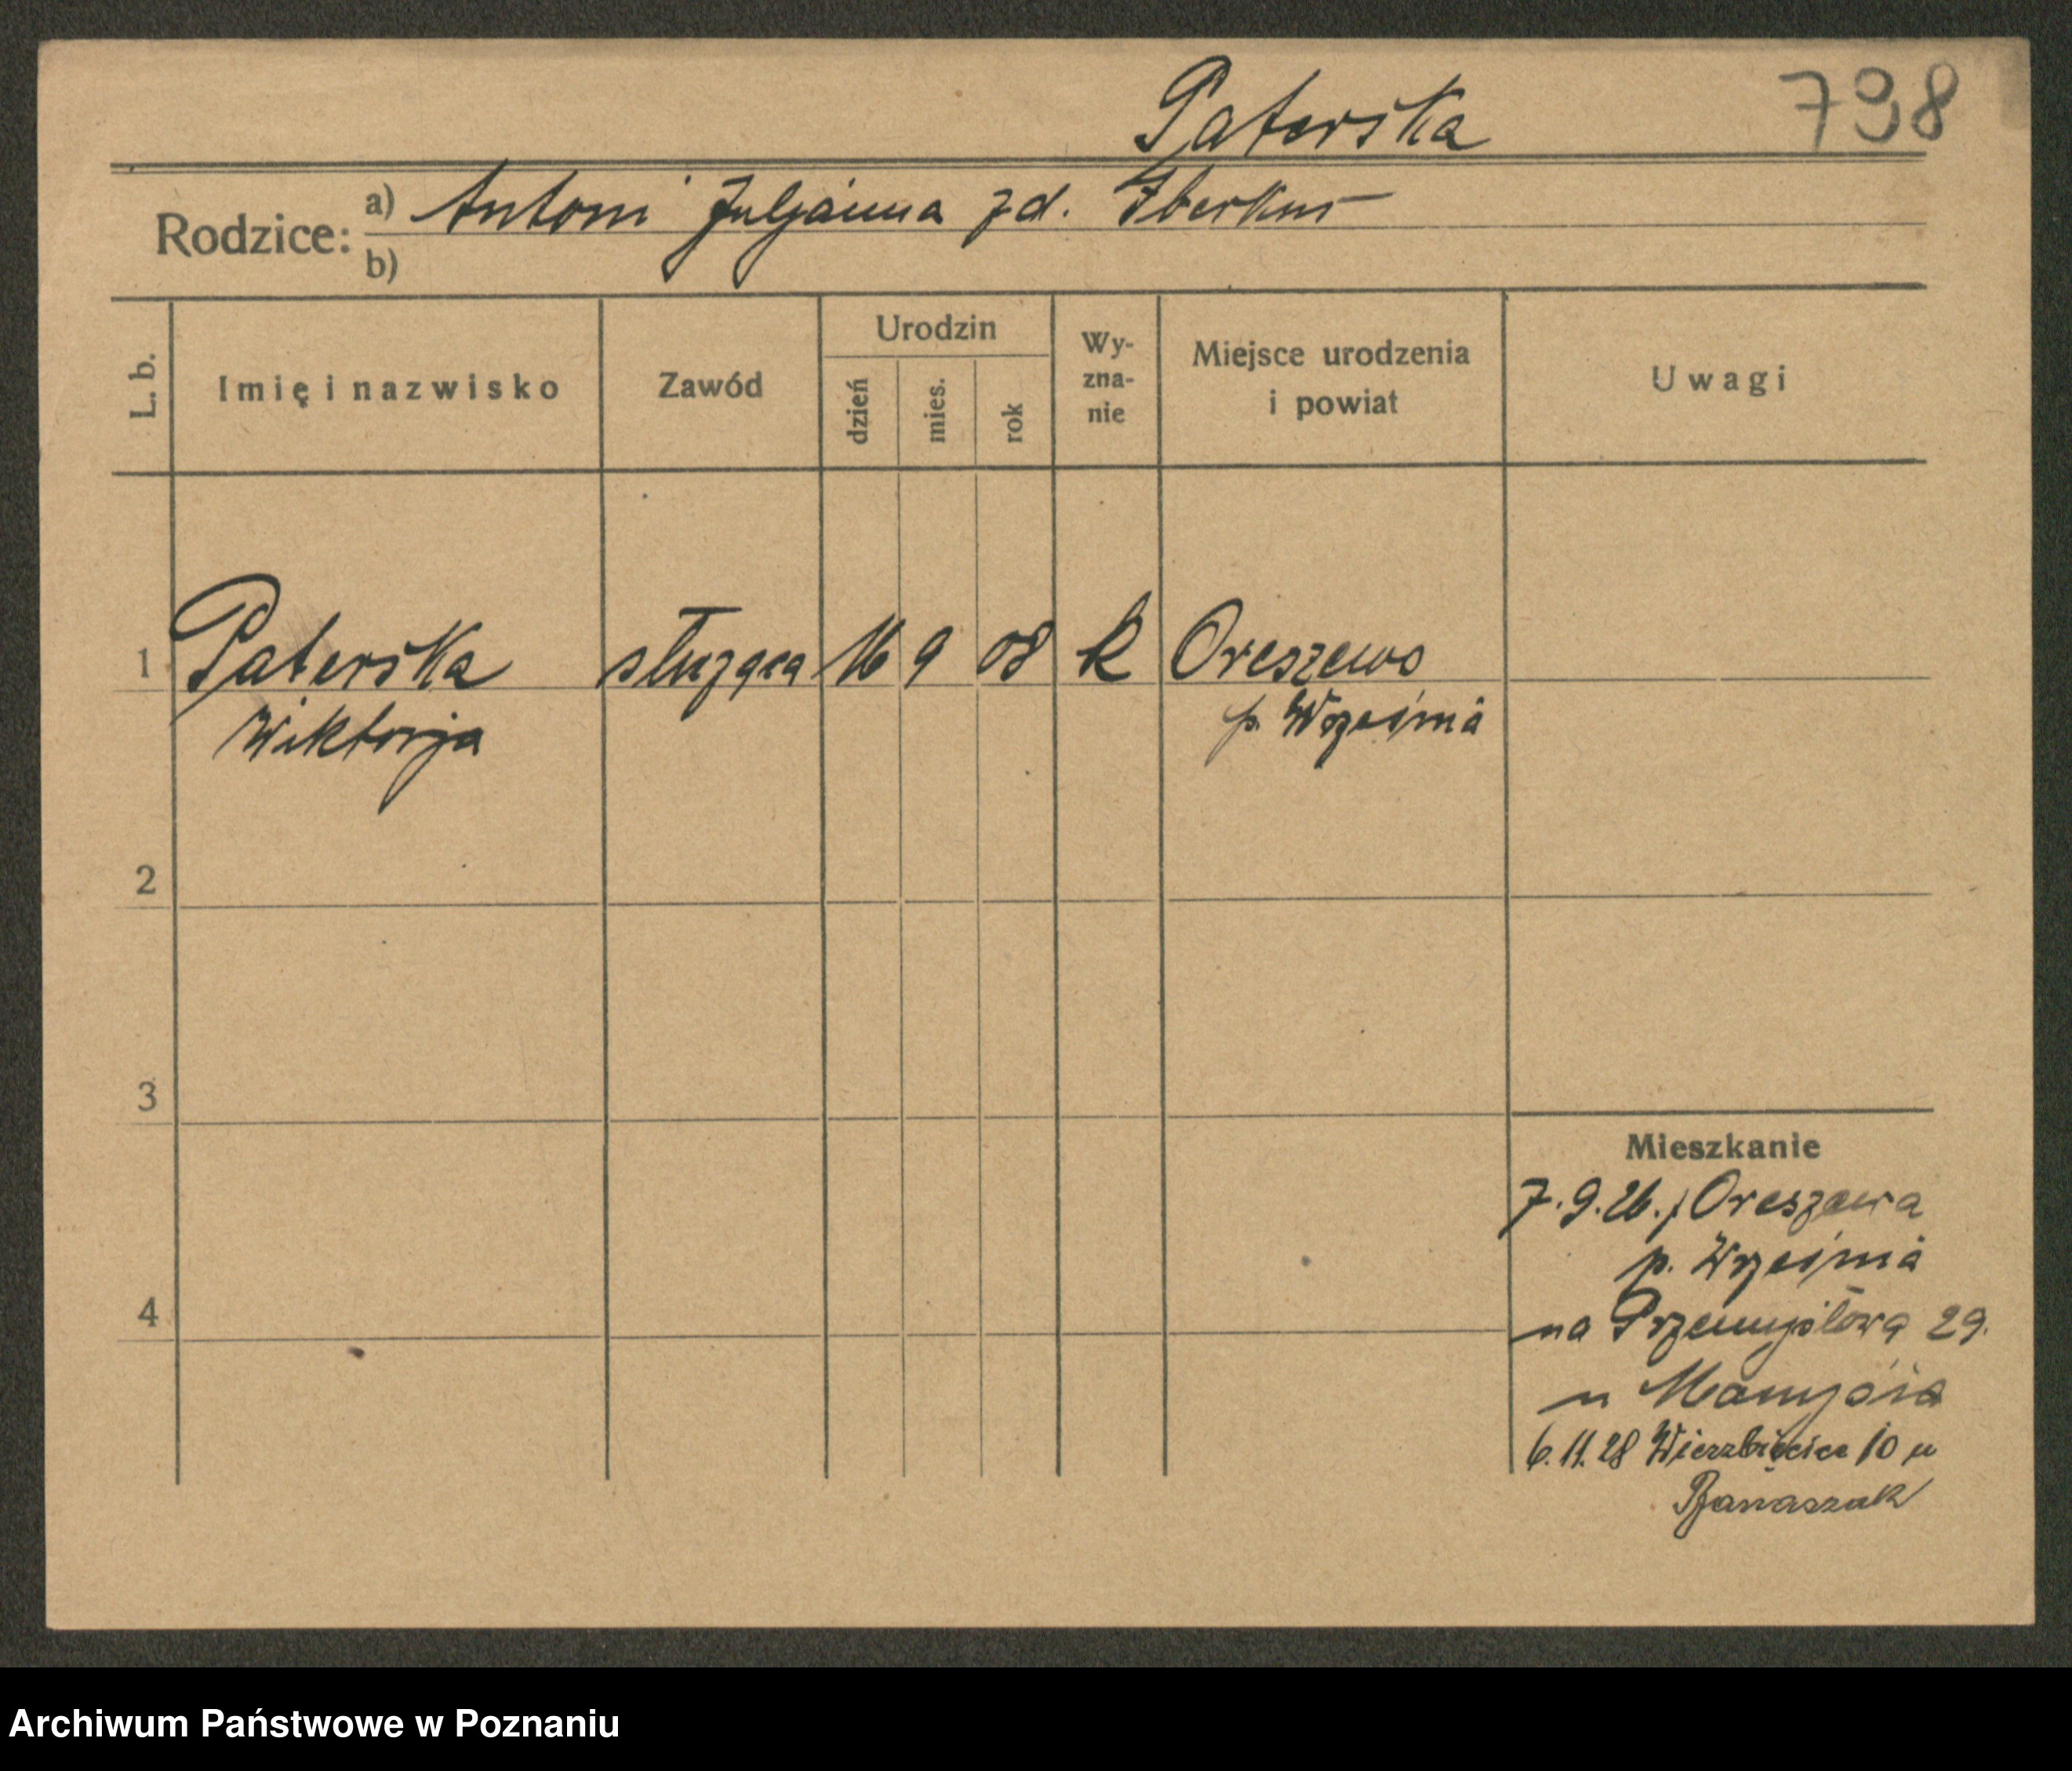 Paterska 798
Rodzice: a) Antoni Juljanna zd.
b)
L. b. Imię i nazwisko Zawód Urodzin dzień mies. rok Wy-zna-nie Miejsce urodzenia i powiat Uwagi
1 Paterska służąca 16 9 08 k Oreszewo
Wiktorja p. Września
2
3
Mieszkanie
7.9.26. z Oreszewa
p. Września
4
na Przemysłową 29.
u
6.11.28 Wierzbięcice 10 u
Banaszak
Archiwum Państwowe w Poznaniu